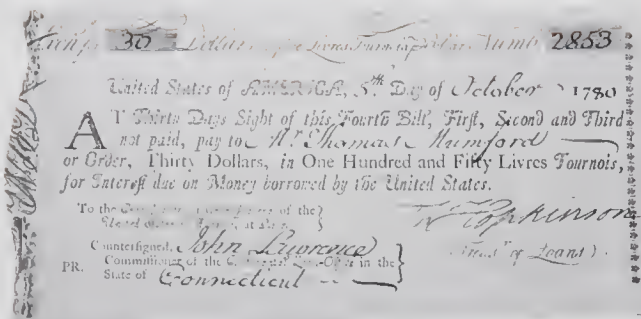 30 Dollars Livres Tournois Numb 2853
United States of AMERICA, 5th Day of October 1780
AT Thirty Days Sight of this Fourth Bill, First, Second and Third
not paid, pay to Mr. Thomas Mumford
or Order, Thirty Dollars, in One Hundred and Fifty Livres Tournois,
for Interest due on Money borrowed by the United States.
To the of the
Hopkinson
Countersigned, John Lawrence
Treasr. of Loans.
Commissioner of the Continental Loan-Office in the
PR. State of Connecticut